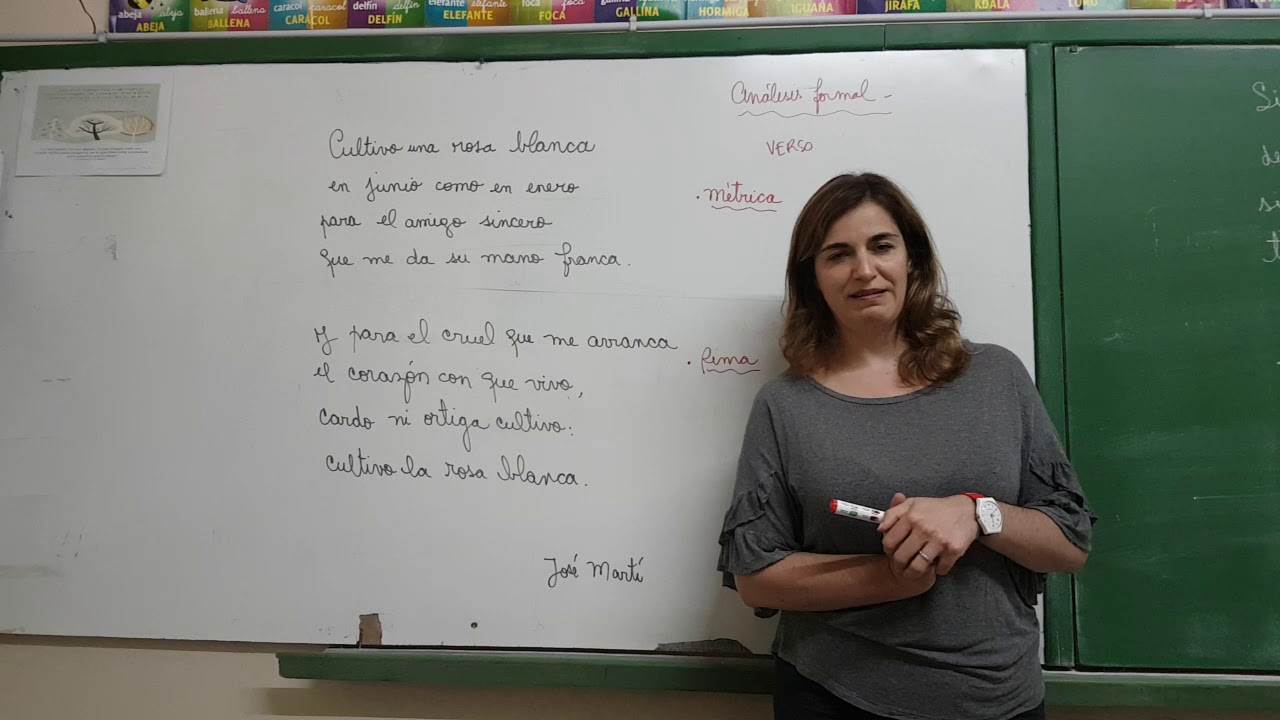 abeja abeja ballena ballena caracol caracol delfín delfín elefante elefante foca foca
ABEJA BALLENA CARACOL DELFÍN ELEFANTE FOCA GALLINA HORMIGA IGUANA JIRAFA KOALA LORO
Análisis formal -
VERSO
. Métrica
Cultivo una rosa blanca
en junio como en enero
para el amigo sincero
que me da su mano franca.
Y para el cruel que me arranca
el corazón con que vivo,
cardo ni ortiga cultivo:
cultivo la rosa blanca.
José Martí
. Rima
Si
de